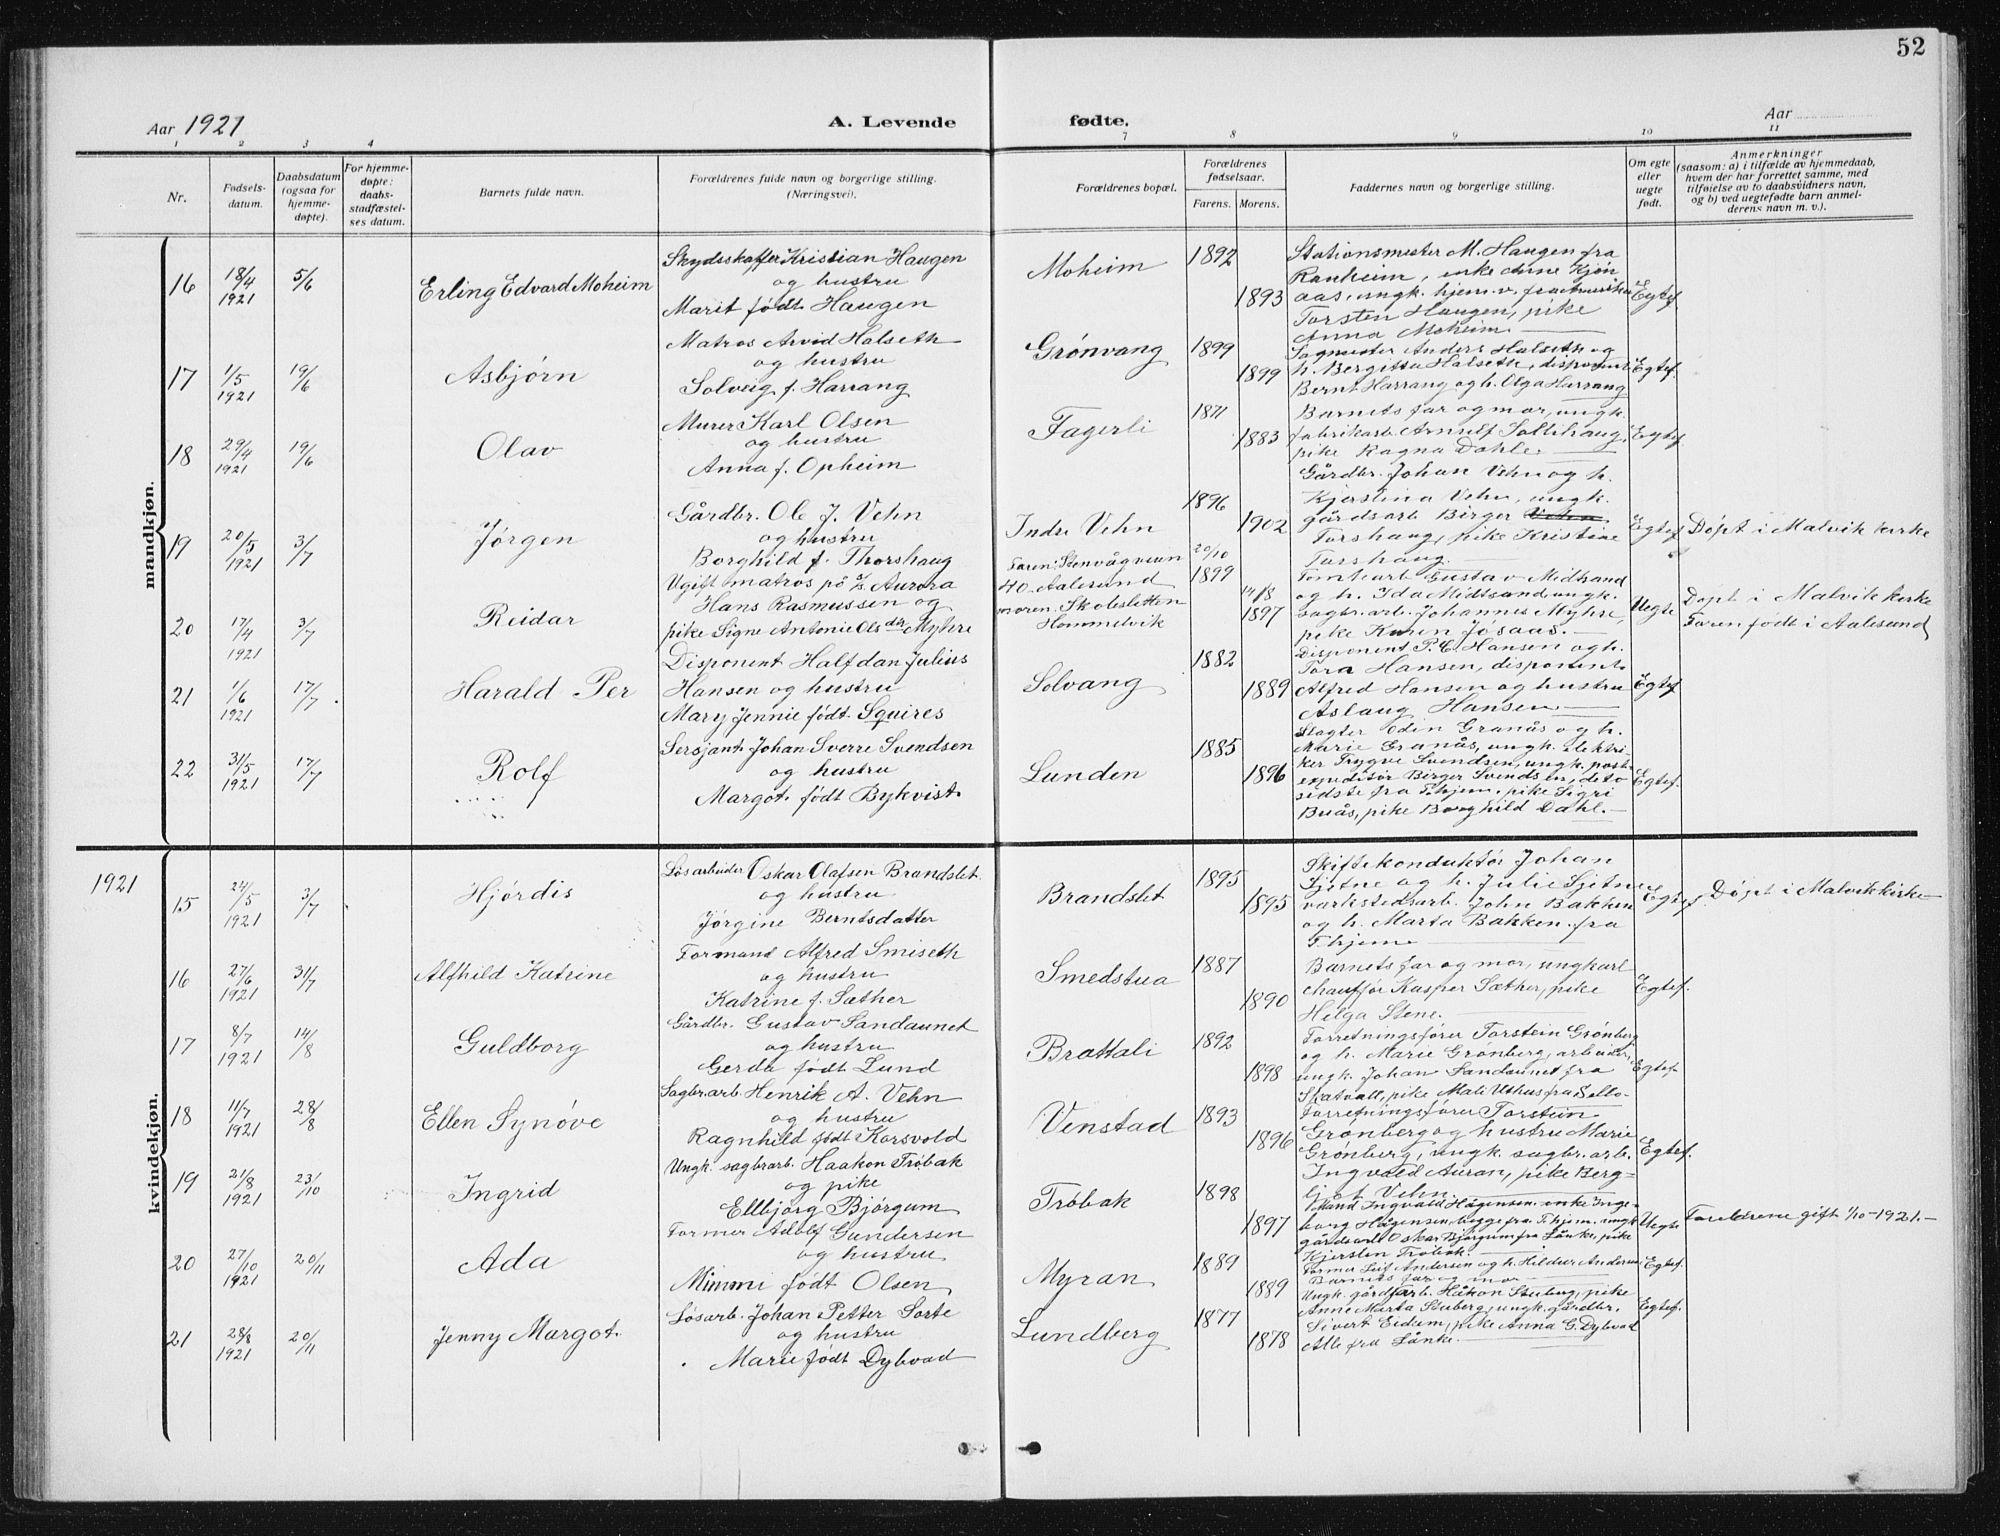 52
Aar 1921
A. Levende fødte.
Aar
1 2 3 4 7 8 9 10 11
Nr.
Fødsels-
datum.
Daabsdatum
(ogsaa for
hjemme-
døpte).
For hjemme-
døpte:
daabs-
stadfæstel-
ses datum.
Barnets fulde navn.
Forældrenes fulde navn og borgerlige stilling.
(Næringsvei).
Forældrenes bopæl.
Forældrenes
fødselsaar.
Farens. Morens.
Faddernes navn og borgerlige stilling.
Om egte
eller
uegte
født.
Anmerkninger
(saasom: a) i tilfælde av hjemmedaab,
hvem der har forrettet samme, med
tilføielse av to daabsvidners navn,
og b) ved uegtefødte barn anmel-
derens navn m. v.).
mandkjøn.
16
18/4
1921
5/6
Erling Edvard Moheim
Skydsskaffer Kristian Haugen
og hustru
Marit født Haugen
Moheim
1892
1893
Stationsmester M. Haugen fra
Ranheim, enke Anne Kjøn
aas, ungk. hjem. v. fra Amerika
Torsten Haugen, pike
Anna Moheim
Egtef.
17
1/5
1921
19/6
Asbjørn
Matros Arvid Halseth
og hustru
Solveig f. Harrang
Grønvang
1899
1899
Sagmester Anders Halseth og
h. Bergitta Halseth, disponent
Bernt Harrang og h. Olga Harrang
Egtef.
18
29/4
1921
19/6
Olav
Murer Karl Olsen
og hustru
Anna f. Opheim
Fagerli
1871
1883
Barnets far og mor, ungk.
fabrikarb. Arnulf Sollihaug,
pike Ragna Dahle.
Egtef.
19
20/5
1921
3/7
Jørgen
Gårdbr. Ole J. Vehn
og hustru
Borghild f. Thorshaug
Indre Vehn
1896
1902
Gårdbr. Johan Vehn og h.
Kjerstina Vehn, ungk.
gårdsarb Birger Vehn
Torshaug, pike Kristine
Torshaug.
Egtef.
Døpt i Malvik kirke
20
17/4
1921
3/7
Reidar
Ugift matros på s/s Aurora
Hans Rasmussen og
pike Signe Antonie Olsdtr Myhre
Faren: Stenvågveien
40. Aalesund
moren. Skolesletten
Hommelvik
20/10
1899
14/8
1897
Tomtearb Gustav Midtsand
og h. Ida Midtsand ungk.
sagbr. arb. Johannes Myhre,
pike Karen Jøsaas.
Uegte
Døpt i Malvik kirke
Faren født i Aalesund
21
1/6
1921
17/7
Harald Per
Disponent Halfdan Julius
Hansen og hustru
Mary Jennie født Squires
Solvang
1882
1889
Disponent P. C. Hansen og h.
Tora Hansen, disponent
Alfred Hansen og hustru
Aslaug Hansen
Egtef
22
31/5
1921
17/7
Rolf
Sersjant Johan Sverre Svendsen
og hustru
Margot født Bykvist
Lunden
1885
1896
Slagter Odin Granås og h.
Marie Granås, ungk. elektri-
ker Trygve Svendsen, ungk. post-
expeditør Birger Svendsen, de to
sidste fra T.hjem, pike Sigri
Buås, pike Borghild Dahl.
Egtef.
1921
kvindekjøn.
15
24/5
1921
3/7
Hjørdis
Løsarbeider Oskar Olafsen Brandslet
og hustru
Jørgine Berntsdatter
Brandslet
1895
1895
Skiftekonduktør Johan
Sjetne og h. Julie Sjetne
verkstedsarb. John Bakken
og h. Marta Bakken fra
T.hjem
Egtef.
Døpt i Malvik kirke
16
27/6
1921
31/7
Alfhild Katrine
Formand Alfred Smiseth
og hustru
Katrine f. Sæther
Smedstua
1887
1890
Barnets far og mor, ungkarl
chauffør Kasper Sæther, pike
Helga Stene.
Egtef.
17
8/7
1921
14/8
Guldborg
Gårdbr. Gustav Sandaunet
og hustru
Gerda født Lund
Brattali
1892
1898
Forretningsfører Torstein Grønberg
og h. Marie Grønberg, arbeider,
ungk. Johan Sandaunet fra
Skatvall, pike Mali Uthus fra Selbo
Egtef.
18
11/7
1921
28/8
Ellen Synøve
Sagbr.arb. Henrik A. Vehn
og hustru
Ragnhild født Korsvold
Venstad
1893
1896
Forretningsfører Torstein
Grønberg og hustru Marie
Grønberg, ungk. sagbr. arb.
Ingvald Auran, pike Berg-
ljot Vehn.
Egtef.
19
21/8
1921
23/10
Ingrid
Ungk. sagbrarb. Haakon Trøbak
og pike
Ellbjørg Bjørgum
Trøbak
1898
1897
Mand Ingvald Hågensen, enke Inge-
borg Hågensen, begge fra T.hjem, ungk.
gårdsarb Oskar Bjørgum fra Lånke, pike
Kjersten Trøbak.
Uegte
Foreldrene gift 1/10-1921.
20
27/10
1921
20/11
Ada
Former Adolf Gundersen
og hustru
Mimmi født Olsen
Myran
1889
1889
Former Leif Andersen og h. Hildur Andersen
Barnets far og mor
Egtef.
21
28/8
1921
20/11
Jenny Margot
Løsarb. Johan Petter Sorte
og hustru
Marie født Dybvad
Lundberg
1877
1878
Ungk. gårdfarb. Håkon Stuberg, pike
Anne Marta Stuberg, ungk. gårdbr.
Sivert Eidum, pike Anna G. Dybvad
Alle fra Lånke.
Egtef.